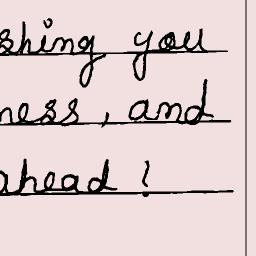 shing you
ness, and
ahead!